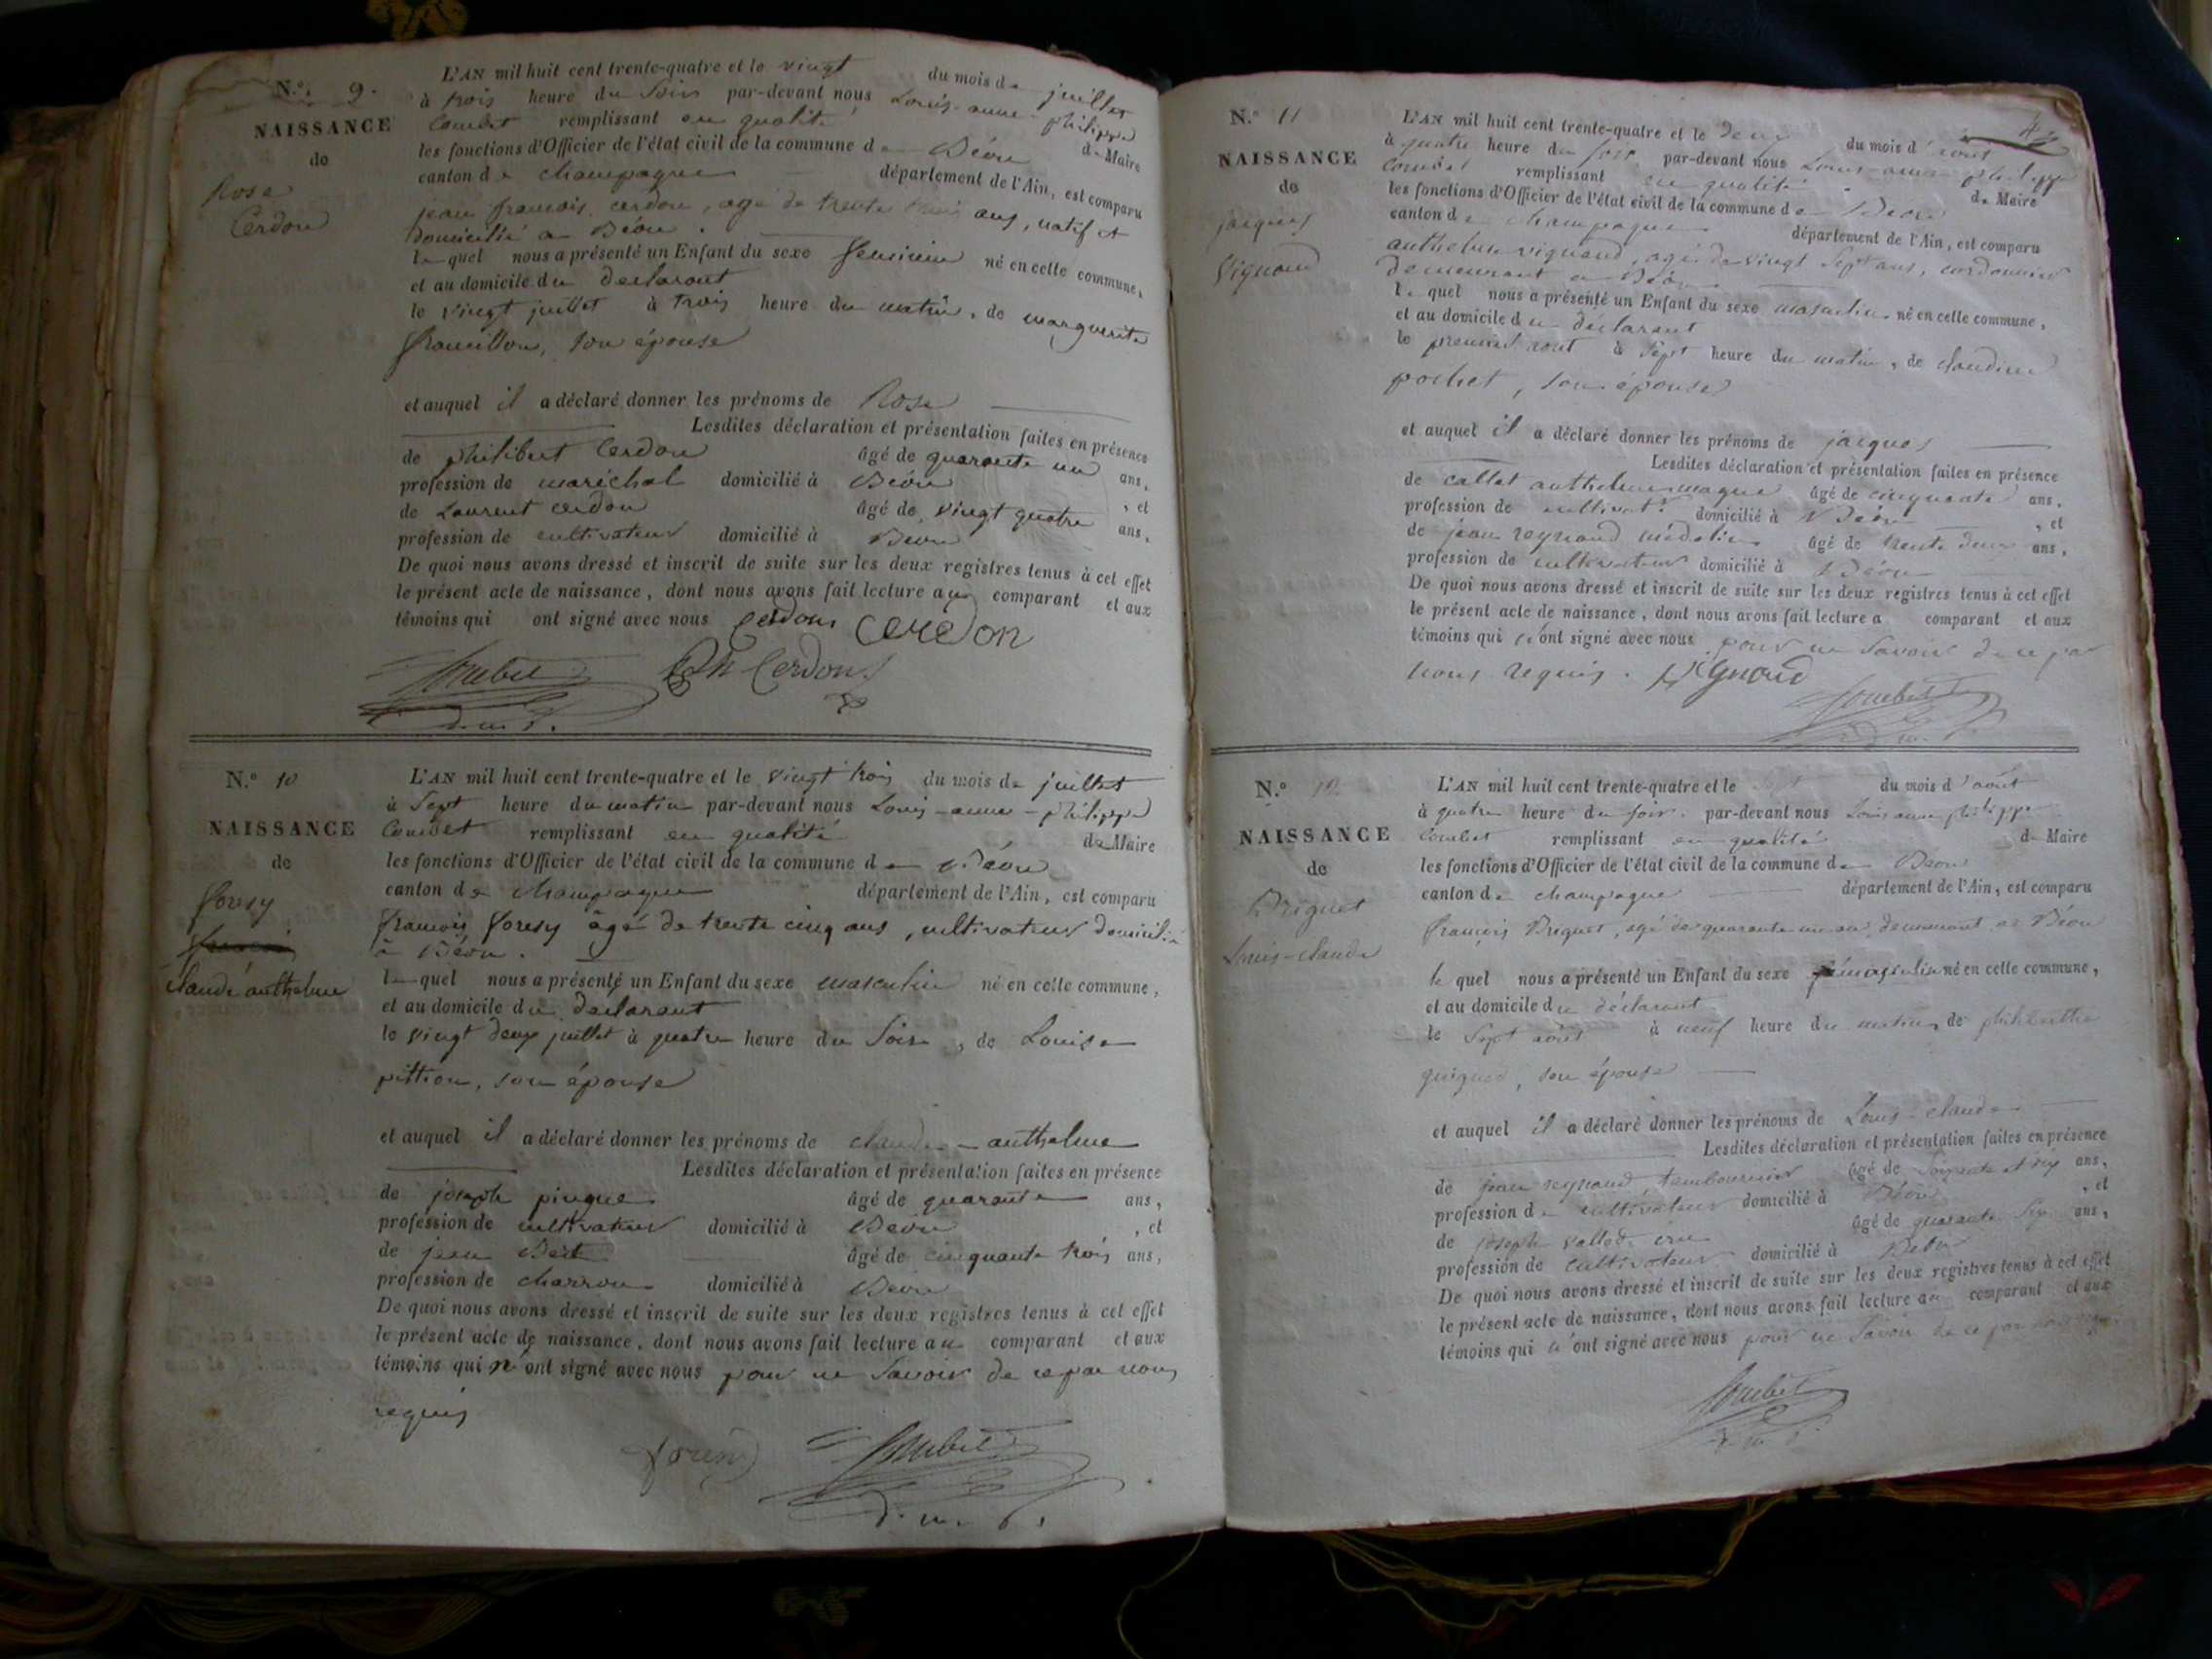 N.º 9.
NAISSANCE
de
Rose
Cerdon
L'AN mil huit cent trente-quatre et le vingt du mois de juillet
à trois heure du soir par-devant nous Louis-anne-philippe
Combet remplissant en qualité de Maire
les fonctions d'Officier de l'état civil de la commune de Béon
canton de champagne département de l'Ain, est comparu
jean françois cerdon, agé de trente trois ans, natif et
domicilié a Béon.
lequel nous a présenté un Enfant du sexe feminin né en cette commune,
et au domicile du declarant
le vingt juillet à trois heure du matin, de marguerite
francillon, son épouse
et auquel il a déclaré donner les prénoms de Rose
Lesdites déclaration et présentation faites en présence
de philibert Cerdon âgé de quarante un ans,
profession de maréchal domicilié à Béon, et
de Laurent cerdon âgé de vingt quatre ans,
profession de cultivateur domicilié à Béon
De quoi nous avons dressé et inscrit de suite sur les deux registres tenus à cet effet
le présent acte de naissance, dont nous avons fait lecture au comparant et aux
témoins qui ont signé avec nous cerdon cerdon
Combet Ph Cerdon
d. m. f.
N.º 10
NAISSANCE
de
foresy
claude anthelme
L'AN mil huit cent trente-quatre et le vingt trois du mois de juillet
à Sept heure du matin par-devant nous Louis-anne-philippe
Combet remplissant en qualité de Maire
les fonctions d'Officier de l'état civil de la commune de Béon
canton de champagne département de l'Ain, est comparu
françois foresy âgé de trente cinq ans, cultivateur domicilié
à Béon.
lequel nous a présenté un Enfant du sexe masculin né en cette commune,
et au domicile du declarant
le vingt deux juillet à quatre heure du soir, de Louise
pittion, son épouse
et auquel il a déclaré donner les prénoms de claude-anthelme
Lesdites déclaration et présentation faites en présence
de joseph pingue âgé de quarante ans,
profession de cultivateur domicilié à Béon, et
de jean âgé de cinquante trois ans,
profession de charron domicilié à Béon
De quoi nous avons dressé et inscrit de suite sur les deux registres tenus à cet effet
le présent acte de naissance, dont nous avons fait lecture au comparant et aux
témoins qui n'ont signé avec nous pour ne savoir de ce par nous
requis
Combet
N.º 11
NAISSANCE
de
jacques
Vignond
L'AN mil huit cent trente-quatre et le deux du mois d'août
à quatre heure du soir par-devant nous Louis-anne-philippe
Combet remplissant en qualité de Maire
les fonctions d'Officier de l'état civil de la commune de Béon
canton de champagne département de l'Ain, est comparu
anthelme vignond, agé de vingt sept ans, cordonnier
demeurant a Béon
lequel nous a présenté un Enfant du sexe masculin né en cette commune,
et au domicile du déclarant
le premier aout à sept heure du matin, de claudine
pochet, son épouse
et auquel il a déclaré donner les prénoms de jacques
Lesdites déclaration et présentation faites en présence
de callet anthelme âgé de cinquante ans,
profession de cultivat.r domicilié à Béon, et
de jean reynaud médolin âgé de trente deux ans,
profession de cultivateur domicilié à Béon
De quoi nous avons dressé et inscrit de suite sur les deux registres tenus à cet effet
le présent acte de naissance, dont nous avons fait lecture a comparant et aux
témoins qui n'ont signé avec nous pour ne savoir de ce par
nous requis. Vignond
Combet
N.º 12
NAISSANCE
de
Briguet
Louis-claude
L'AN mil huit cent trente-quatre et le sept du mois d'août
à quatre heure du soir par-devant nous Louis anne philippe
Combet remplissant en qualité de Maire
les fonctions d'Officier de l'état civil de la commune de Béon
canton de champagne département de l'Ain, est comparu
françois Briguet, agé de quarante un an, demeurant a Béon
lequel nous a présenté un Enfant du sexe masculin né en cette commune,
et au domicile du déclarant
le Sept août à neuf heure du matin, de philiberthe
guigue, son épouse
et auquel il a déclaré donner les prénoms de Louis-claude
Lesdites déclaration et présentation faites en présence
de jean reynaud tambournier âgé de soixante et six ans,
profession de cultivateur domicilié à Béon, et
de joseph vallod âgé de quarante six ans,
profession de cultivateur domicilié à Béon
De quoi nous avons dressé et inscrit de suite sur les deux registres tenus à cet effet
le présent acte de naissance, dont nous avons fait lecture au comparant et aux
témoins qui n'ont signé avec nous pour ne savoir de ce par nous
Combet